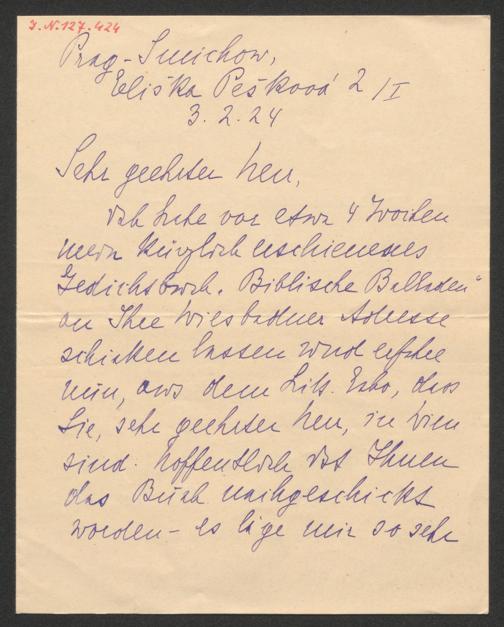 J.N. 127.424
Prag-Smichow,
Eliška Pešková 2/I
3. 2. 24
Sehr geehrter Herr,
ich habe vor etwa 4 Wochen
mein kürzlich erschienenes
Gedichtbuch „Biblische Balladen"
an Ihre Wiesbadner Adresse
schicken lassen und erfahre
nun, aus dem Lit. Echo, dass
Sie, sehr geehrter Herr, in Wien
sind. Hoffentlich ist Ihnen
das Buch nachgeschickt
worden – es läge mir so sehr